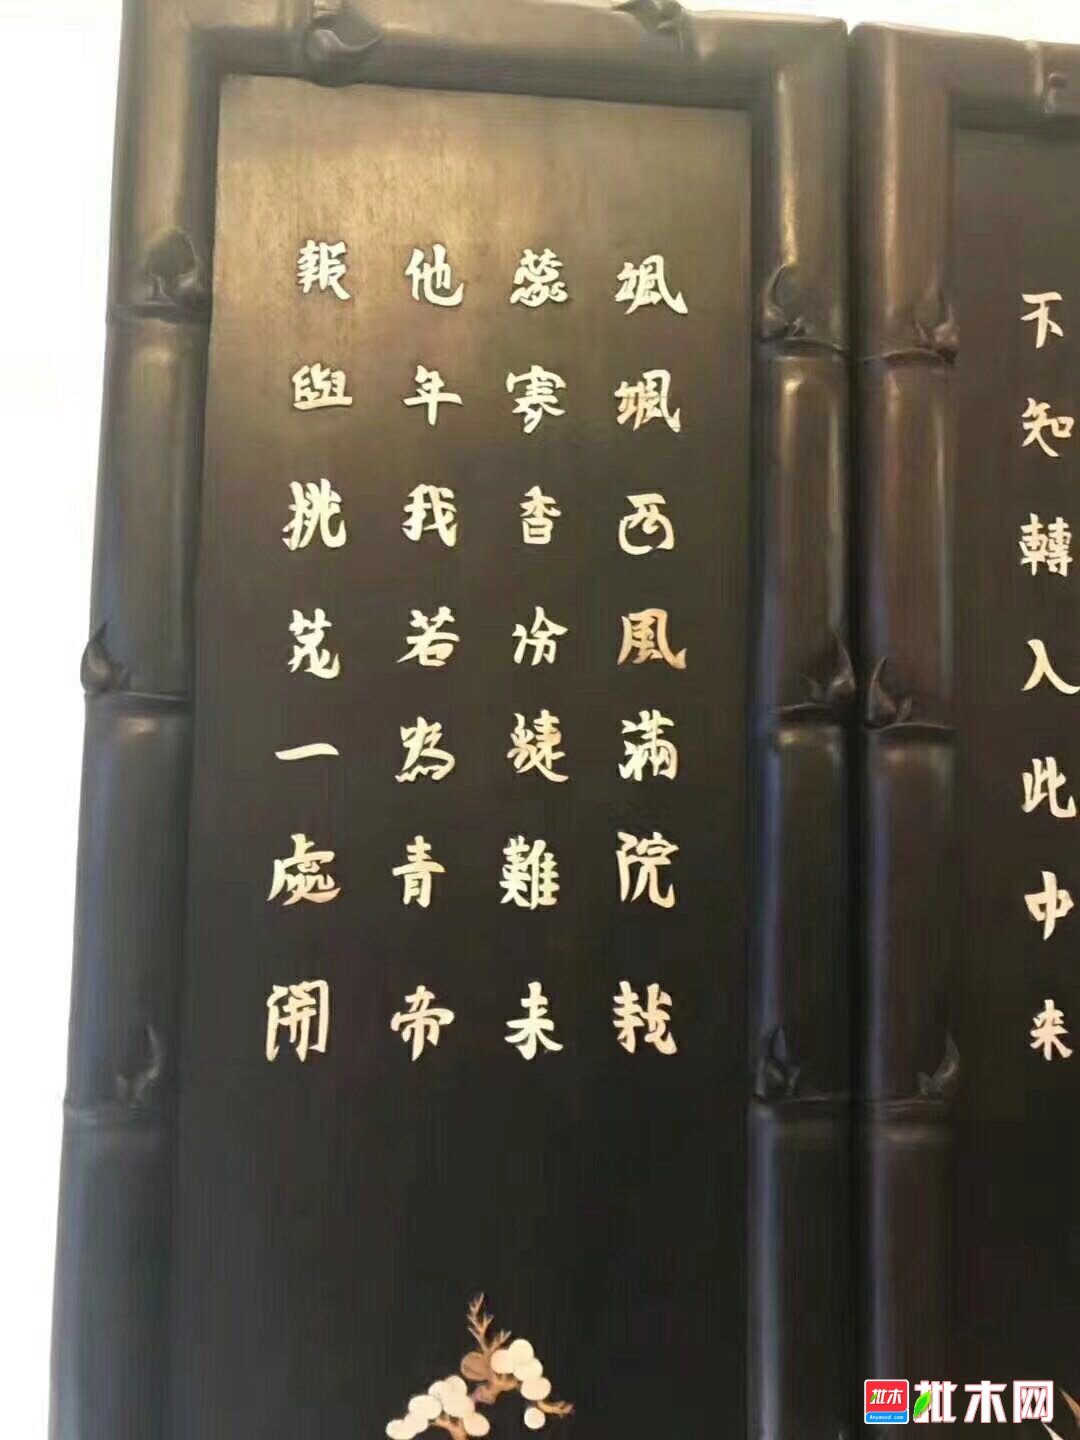 不知轉入此中来
颯颯西風滿院栽
蕊寒香冷蜨難来
他年我若為青帝
報與桃花一處開
批木
Anywood.com
批木网